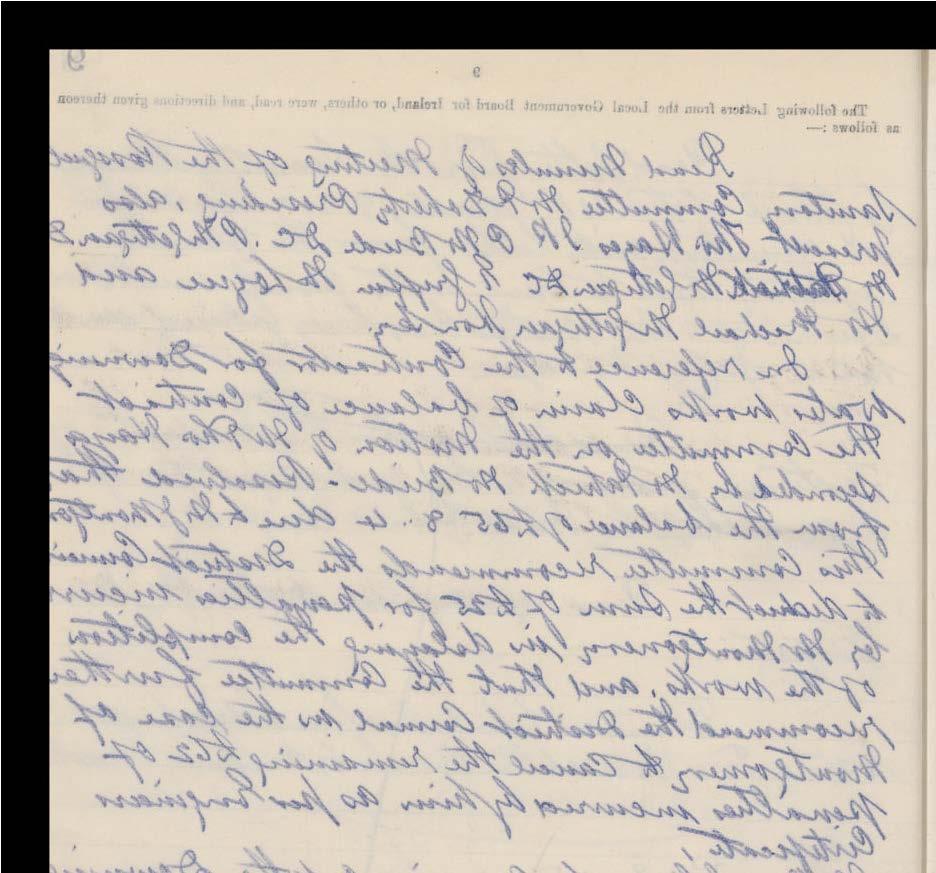 9
9
The following Letters from the Local Government Board for Ireland, or others, were read, and directions given thereon
as follows :—
Read Minutes of Meeting of the Rosguil
Sanitary Committee Mr P Doherty Presiding, also
present Thos Hayes J.P. P McBride DC. P McGettigan D
Mr Patrick McGettigan DC N Griffin McLogue and
Mr Michael McGettigan Hon Sec.
In reference to the Contractor for Downing
Water works Claim of balance of Contract
The Committee on the Motion of Mr Thos Hayes
seconded by Mr Patrick McBride - Resolved That
from the balance of £65 8 4 due to Mr Montgom
This Committee recommends the District Counci
to deduct the Sum of £25 for penalties incurr
by Mr Montgomery in delaying the completion
of the works, and that the Committee further
recommend the District Council in the Case of
Montgomery to Cancel the remaining £62 of
penalties incurred by him as per Engineers
Certificate
the Downing